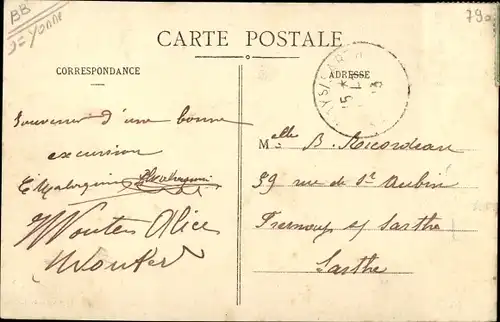 BB
79a
CARTE POSTALE
CORRESPONDANCE
ADRESSE
Souvenir d'une bonne
excursion
Wouters Alice
Wouters
Melle B. Ricordeau
59 rue de St Aubin
Fresnay s/ Sarthe
Sarthe